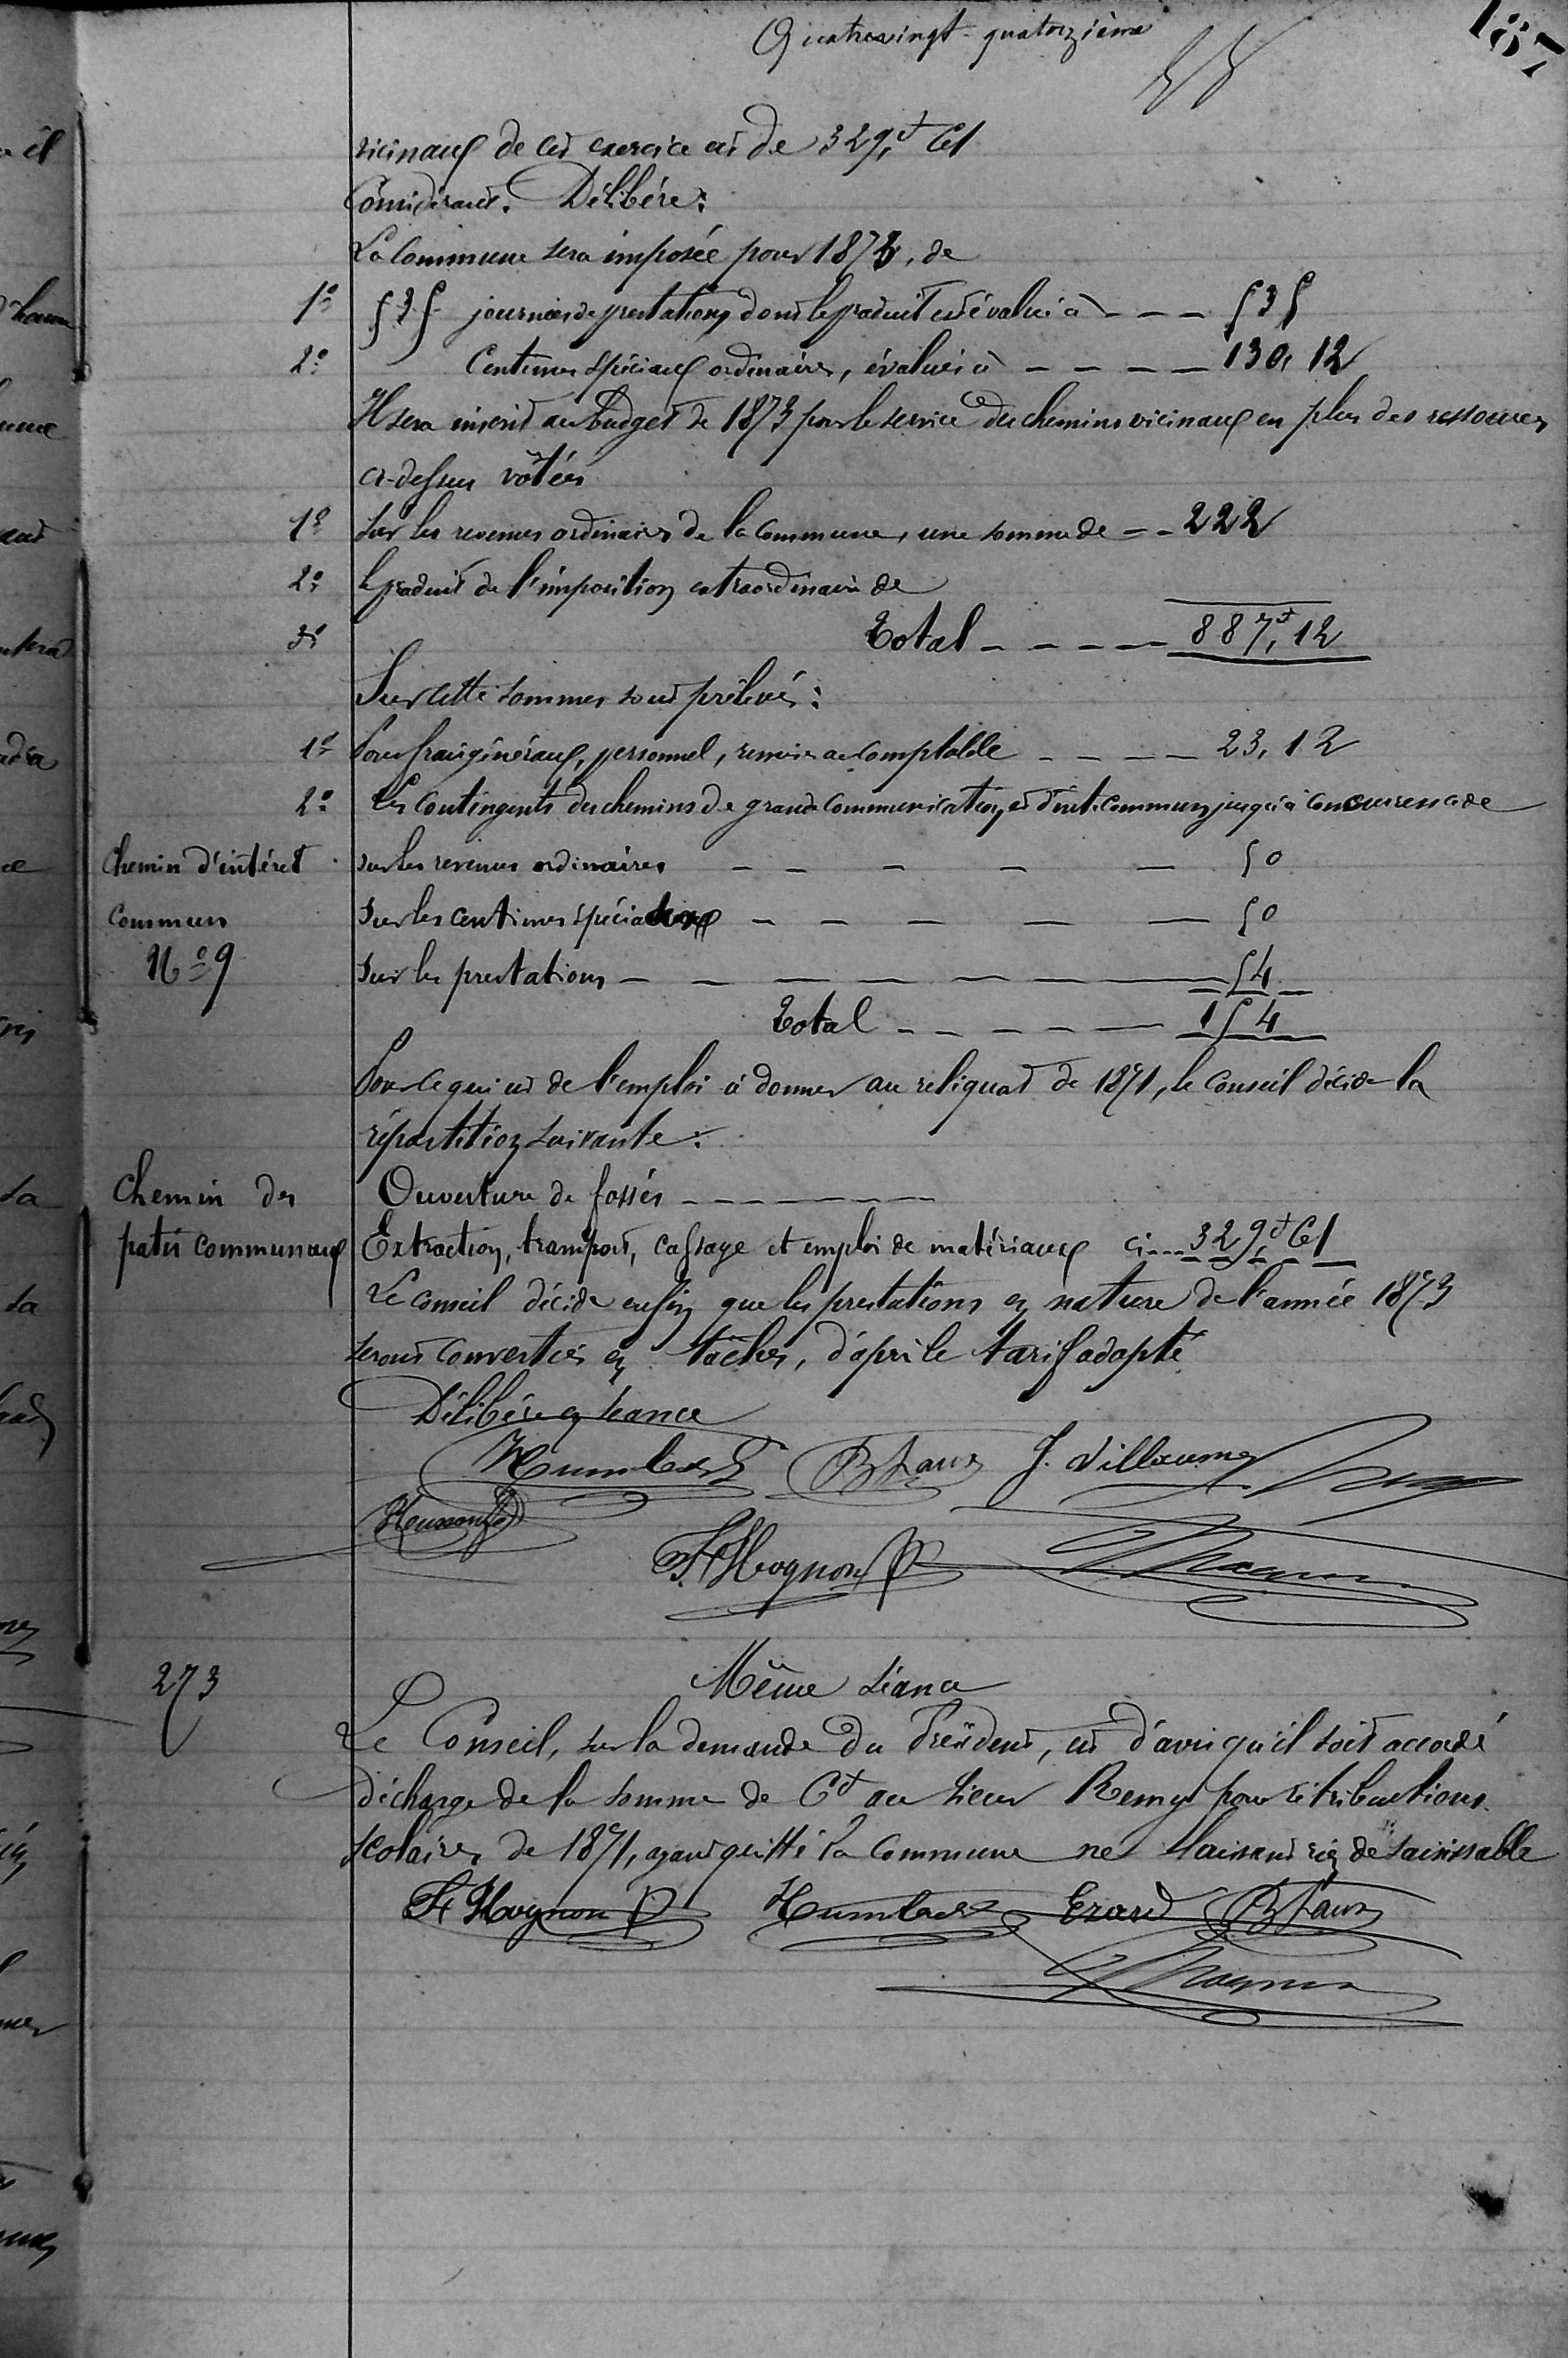 Quatrevingt-quatorzième
187
vicinaux de cet exercice est de 329,f 61
Considérant. Délibère:
La Commune sera imposée pour 1873, de
1° 535 journées de prestations dont le produit est évalué à --- 535
2° Centimes spéciaux ordinaires, évalués à ---- 130,12
Il sera inscrit au budget de 1873 pour le service des chemins vicinaux en plus des ressources
ci-dessus votées
1° sur les revenus ordinaires de la commune, une somme de -- 222
2° le produit de l'imposition extraordinaire de
3° Total ---- 887f,12
Sur cette sommes sont prélevés:
1° Pour frais généraux, personnel, remises au comptable ---- 23,12
2° Les contingents des chemins de grande communication et d'int. commun jusqu'à concurrence de
Chemin d'intéret
commun
N° 9
sur les revenus ordinaires ----- 50
sur les centimes spéciaux ----- 50
sur les prestations ------ 54
Total ----- 154
Pour ce qui est de l'emploi à donner au reliquat de 1871, le Conseil décide la
répartition suivante:
Chemin des
patis communaux
Ouverture de fossés --------
Extraction, transport, cassage et emploi de matériaux ci... 329f 61
Le conseil décide enfin que les prestations en nature de l'année 1873
seront converties en tâches, d'après le tarif adopté
Délibéré en séance
Humbert B Laux J. Villaume
F. Hognon P
273
Même séance
Le Conseil, sur la demande du Président, est d'avis qu'il soit accordé
décharge de la somme de 6f au sieur Remy pour rétributions
scolaires de 1871, ayant quitté la commune ne laissant rien de saisissable
F. Hognon P Humbert Erard B Laux